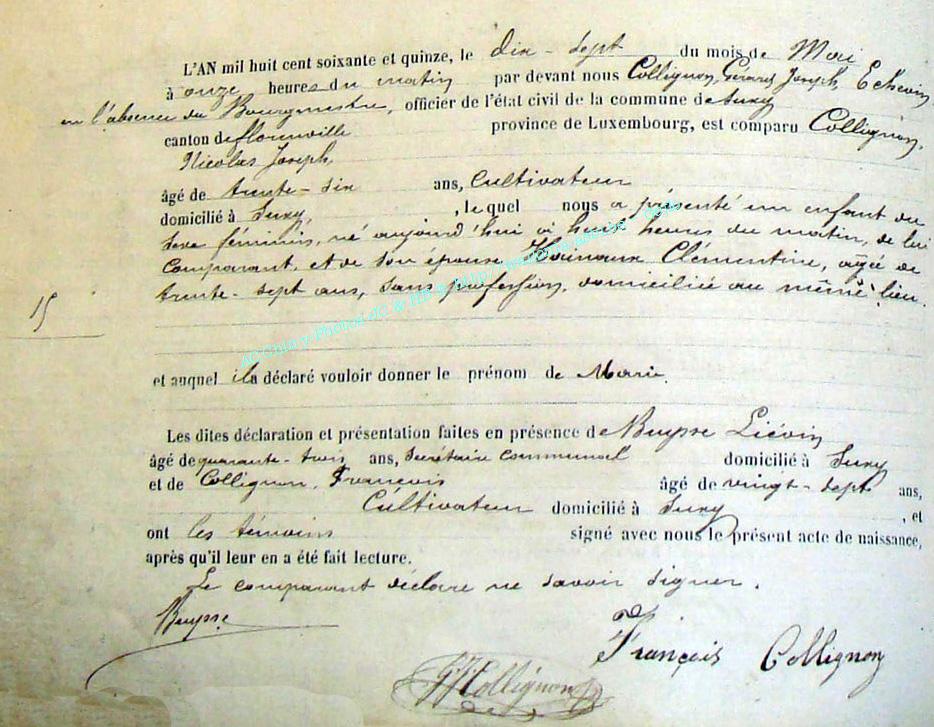 L'AN mil huit cent soixante et quinze, le dix-sept du mois de Mai
à onze heures du matin par devant nous Collignon, Gérard Joseph, Echevin
en l'absence du Bourgmestre, officier de l'état civil de la commune de Suxy
canton de florenville province de Luxembourg, est comparu Collignon,
Nicolas Joseph,
âgé de trente-six ans, Cultivateur
domicilié à Suxy, , lequel nous a présenté un enfant du
Sexe féminin, né aujourd'hui à huit heures du matin, de lui
Comparant, et de son épouse Hainaux Clémentine, agée de
trente-sept ans, sans profession, domiciliée au même lieu.
15
et auquel il a déclaré vouloir donner le prénom de Marie.
Les dites déclaration et présentation faites en présence de Liévin
âgé de quarante-trois ans, Secrétaire Communal domicilié à Suxy
et de Collignon, François âgé de vingt-sept ans,
Cultivateur domicilié à Suxy , et
ont les témoins signé avec nous le présent acte de naissance,
après qu'il leur en a été fait lecture.
Le comparant déclare ne savoir signer.
François Collignon
GJ Collignon